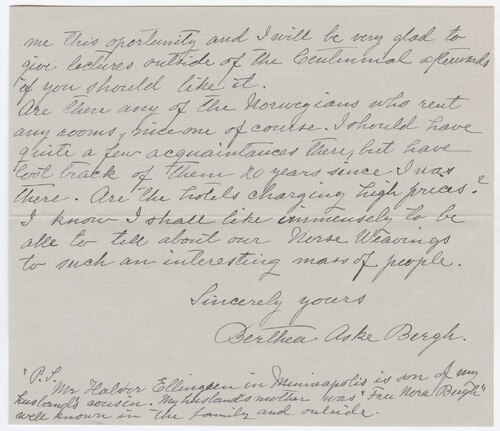 me this oportunity and I will be very glad to
give lectures outside of the Centennial afterwards
if you should like it.
Are there any of the Norwegians who rent
any rooms, nice one of course. I should have
quite a few acquaintances there, but have
lost track of them 20 years since I was
there. Are the hotels charging high prices?
I know I shall like immensely to be
able to tell about our Norse Weavings
to such an interesting mass of people.
Sincerely yours
Berthea Aske Bergh.
"P.S.
Mr Halvor Ellingsen in Minneapolis is son of my
husband's cousin. My husband's mother was "Fru Nora Bergh"
well known in the family and outside.